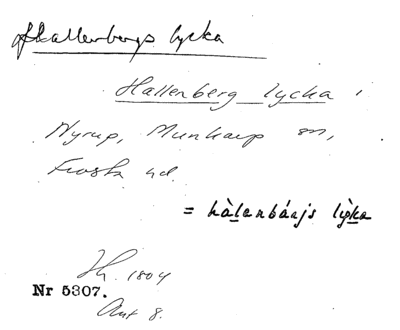 Hallenbergs lycka
Hallenberg lycka i
Nyrup, Munkarp sn,
Frosta hd.
= hàlenbárjs lỳka
Sk. 1804
Nr 5307.
Ant 8.